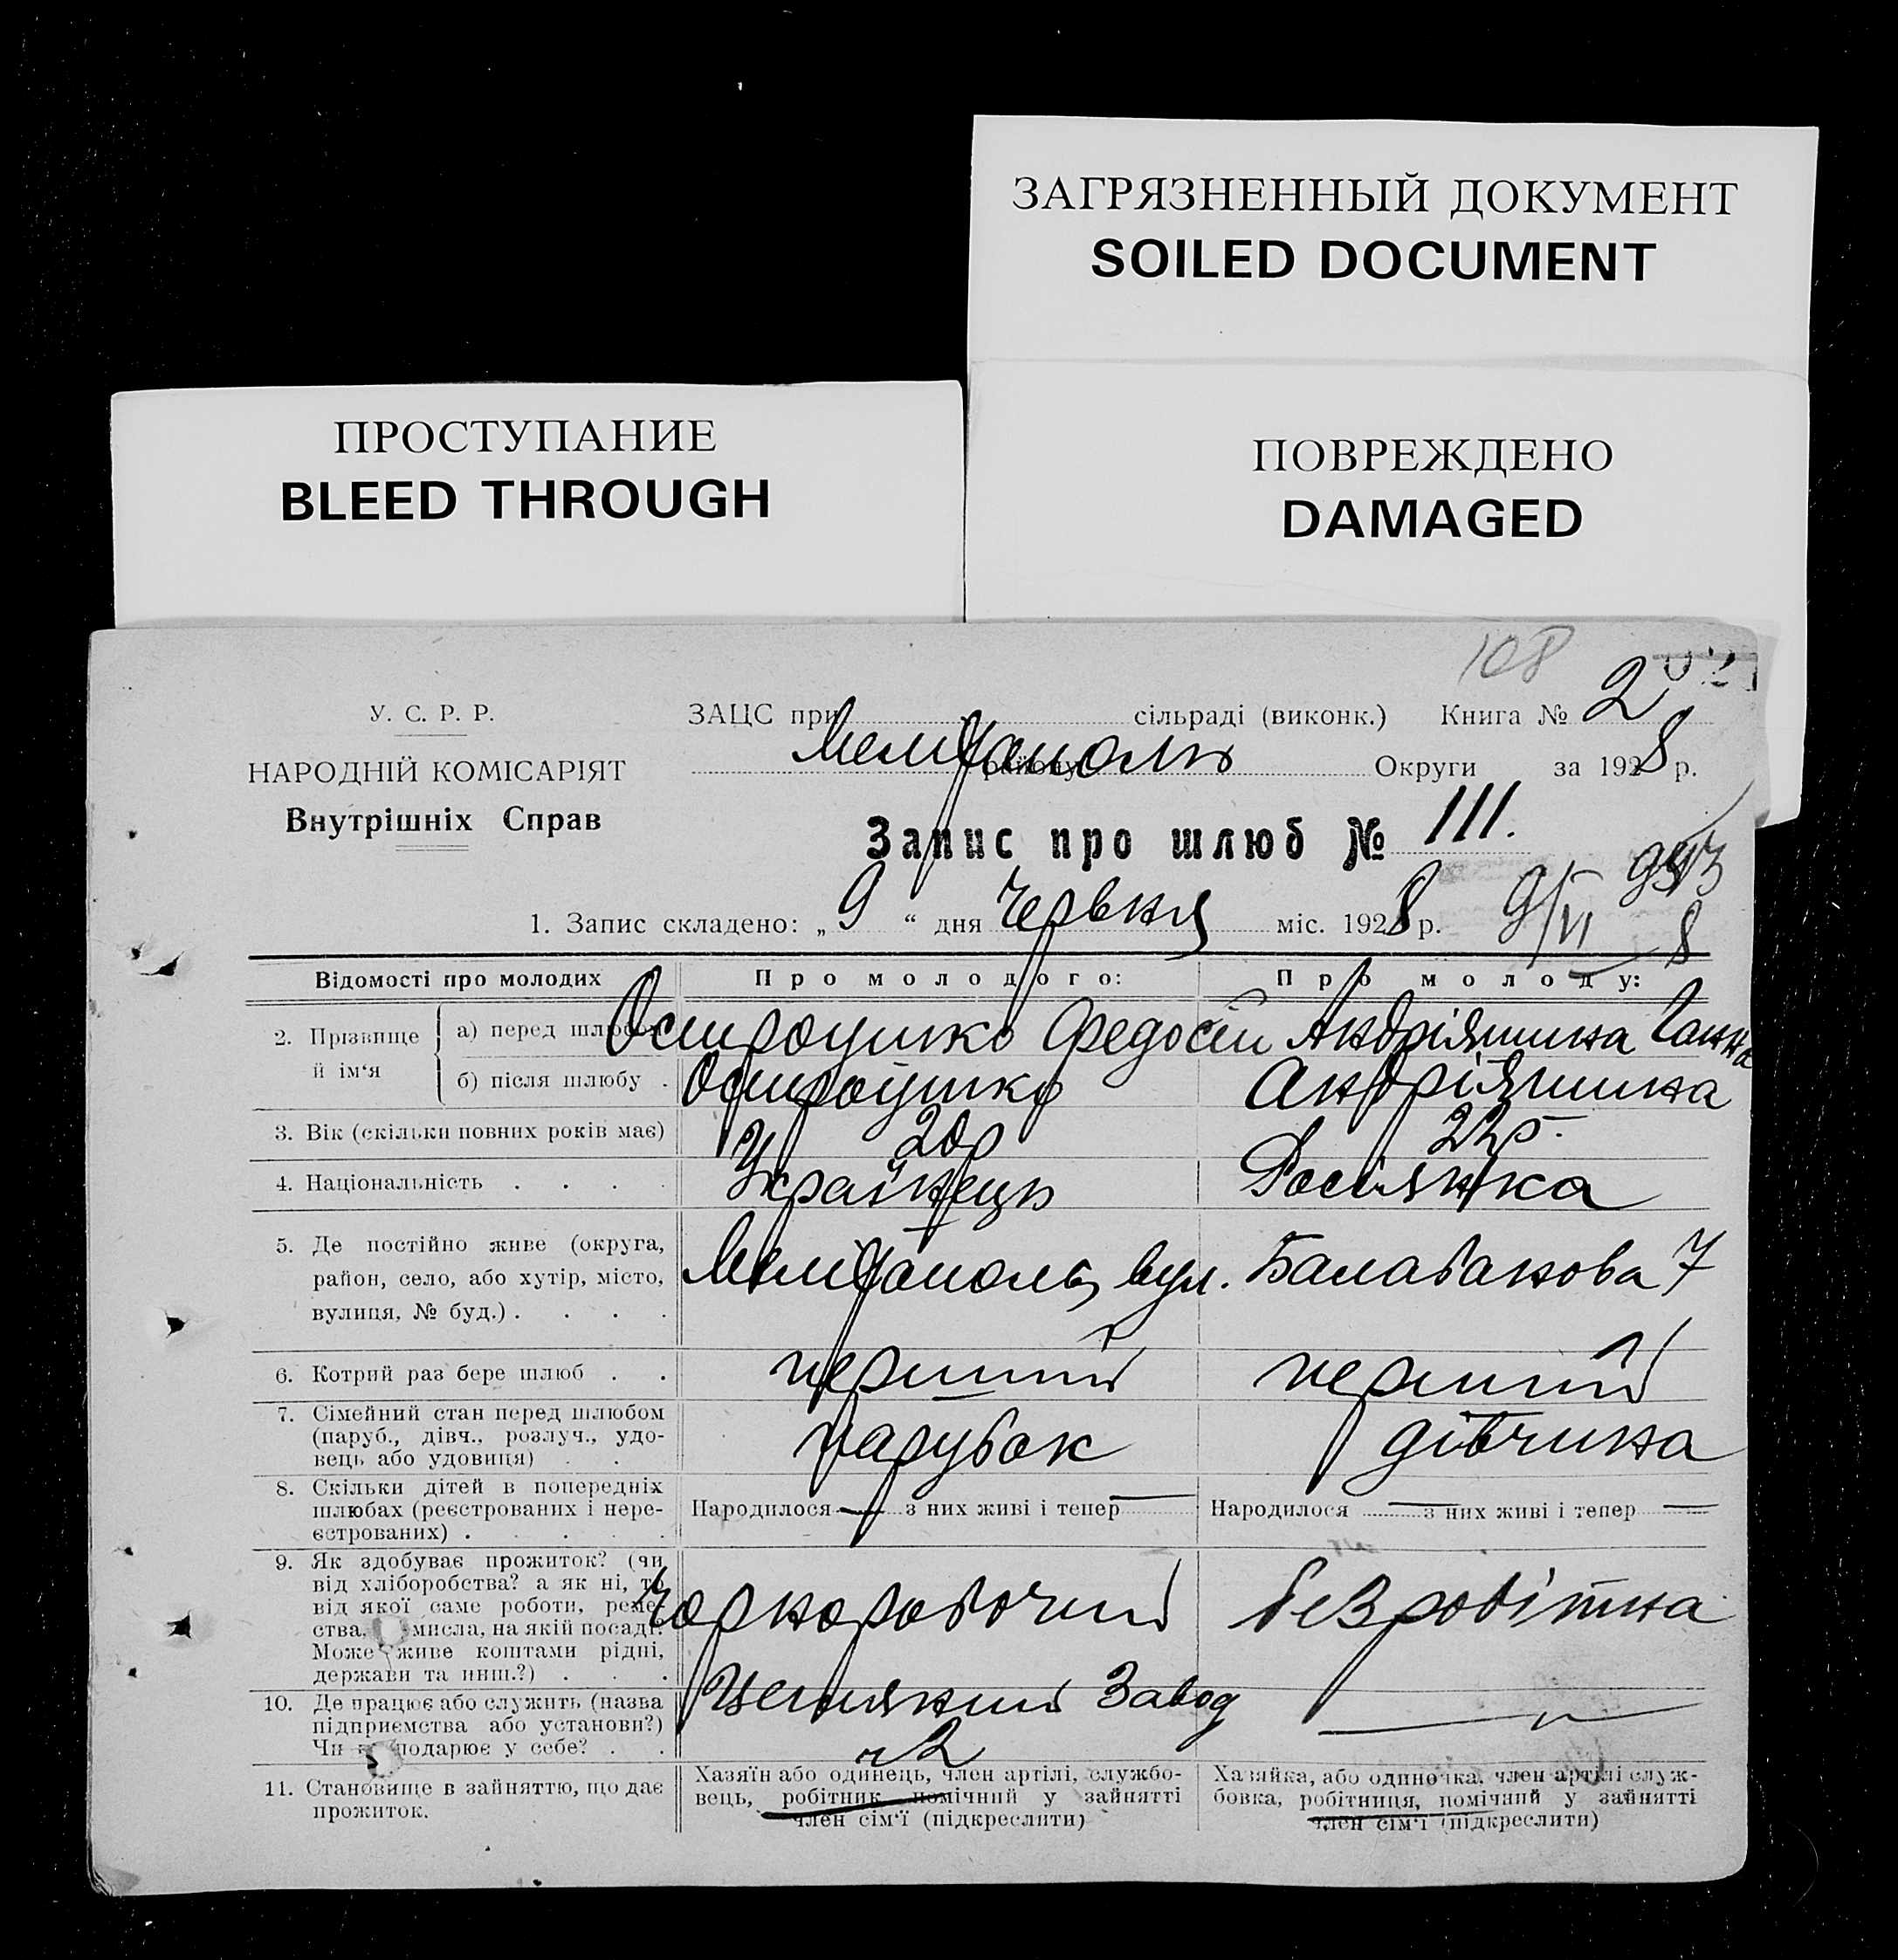 ЗАГРЯЗНЕННЫЙ ДОКУМЕНТ
SOILED DOCUMENT
ПРОСТУПАНИЕ
BLEED THROUGH
ПОВРЕЖДЕНО
DAMAGED
108
У. С. Р. Р.
НАРОДНІЙ КОМІСАРІЯТ
Внутрішніх Справ
ЗАЦС при сільраді (виконк.) Книга № 2
Мелітополь району Округи за 1928 р.
Запис про шлюб № 111.
1. Запис складено: „ 9 “ дня Червня міс. 1928 р. 9/VI 8
Відомості про молодих Про молодого: Про молоду:
2. Прізвище й ім‘я
а) перед шлюбом Остроушко Федосій Андріяшина Ганна
б) після шлюбу . Остроушко Андріяшина
3. Вік (скільки повних років має) 20р 22р.
4. Національність . . . . Українець Росіянка
5. Де постійно живе (округа,
район, село, або хутір, місто,
вулиця, № буд.) . . . . Мелітополь, вул. Балабанова 7
6. Котрий раз бере шлюб . . перший перший
7. Сімейний стан перед шлюбом
(паруб., дівч., розлуч., удо-
вець або удовиця) . . парубок дівчина
8. Скільки дітей в попередніх
шлюбах (реєстрованих і нере-
єстрованих) . . . . .
Народилося — з них живі і тепер — Народилося — з них живі і тепер —
9. Як здобуває прожиток? (чи
від хліборобства? а як ні, то
від якої саме роботи, реме-
ства, мисла, на якій посаді?
Може живе коштами рідні,
держави та инш.?) . . .
Чорноробочий безробітна
10. Де працює або служить (назва
підприємства або установи?)
Чи господарює у себе? . .
Цегляний Завод —
ч 2
11. Становище в зайняттю, що дає
прожиток.
Хазяїн або одинець, член артілі, службо-
вець, робітник помічний у зайнятті
член сім‘ї (підкреслити)
Хазяйка, або одиночка, член артілі служ-
бовка, робітниця, помічний у зайнятті
член сім‘ї (підкреслити)